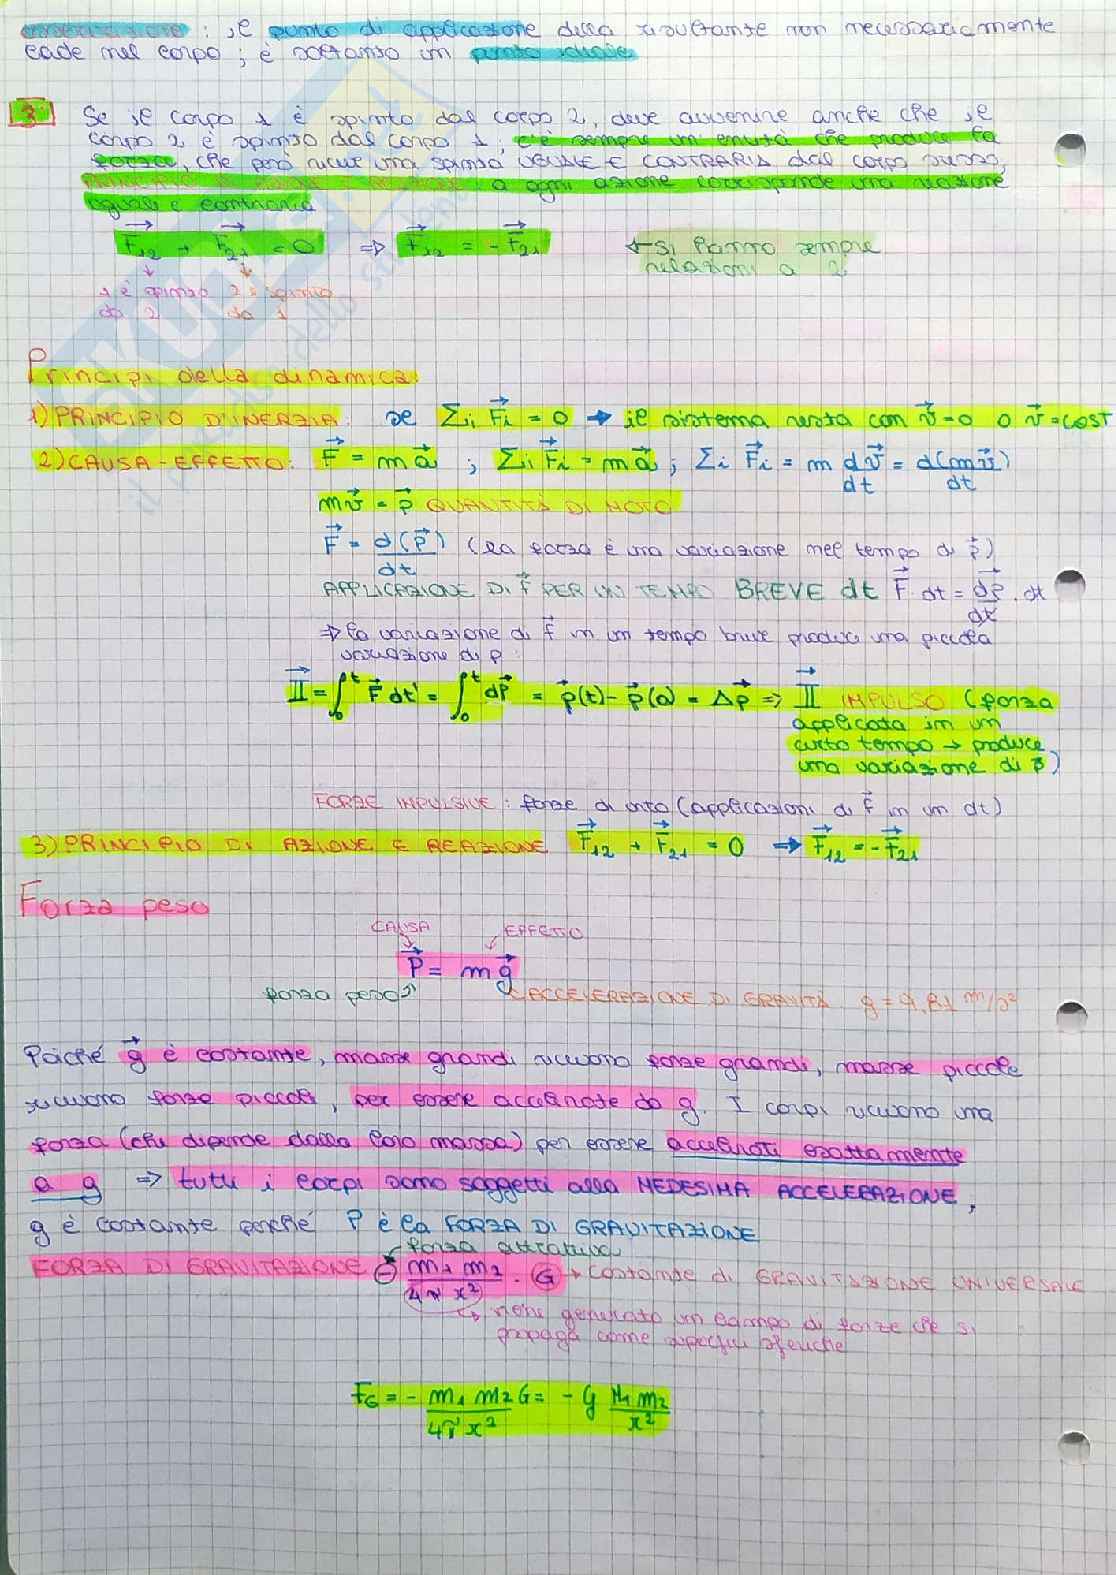 osservazione : il punto di applicazione della risultante non necessariamente
cade nel corpo ; è soltanto un punto ideale
3 Se il corpo 1 è spinto dal corpo 2, deve avvenire anche che il
corpo 2 è spinto dal corpo 1, c'è sempre un'entità che produce la
forza, che però riceve una spinta UGUALE E CONTRARIA dal corpo
a ogni azione corrisponde una reazione
uguale e contraria
F12 + F21 = 0 ⇒ F12 = - F21 ← si fanno sempre
relazioni a 2
1 è spinto 2 è spinto
da 2 da 1
Principi della dinamica:
1) PRINCIPIO D'INERZIA: se Σi Fi = 0 → il sistema resta con v = 0 o v = cost
2) CAUSA - EFFETTO: F = m a ; Σi Fi = m a ; Σi Fi = m dv/dt = d(mv)/dt
mv = p QUANTITÀ DI MOTO
F = d(p)/dt (la forza è una variazione nel tempo di p)
APPLICAZIONE DI F PER UN TEMPO BREVE dt F · dt = dp/dt · dt
⇒ la variazione di F in un tempo breve produce una piccola
variazione di p :
II = ∫0^t F dt' = ∫0^t dp = p(t) - p(0) = Δp ⇒ II IMPULSO (forza
applicata in un
certo tempo → produce
una variazione di p)
FORZE IMPULSIVE : forze di urto (applicazioni di F in un dt)
3) PRINCIPIO DI AZIONE E REAZIONE F12 + F21 = 0 → F12 = - F21
Forza peso
CAUSA EFFETTO
P = m g
forza peso ACCELERAZIONE DI GRAVITÀ g = 9,81 m/s²
Poiché g è costante, masse grandi ricevono forze grandi, masse piccole
ricevono forze piccole, per essere accelerate da g. I corpi ricevono una
forza (che dipende dalla loro massa) per essere accelerati esattamente
a g ⇒ tutti i corpi sono soggetti alla MEDESIMA ACCELERAZIONE,
g è costante perché P è la FORZA DI GRAVITAZIONE
forza attrattiva
FORZA DI GRAVITAZIONE - m1 m2 / 4π x² · G → costante di GRAVITAZIONE UNIVERSALE
viene generato un campo di forze che si
propaga come superfici sferiche
FG = - m1 m2 / 4π x² G = - g m1 m2 / x²